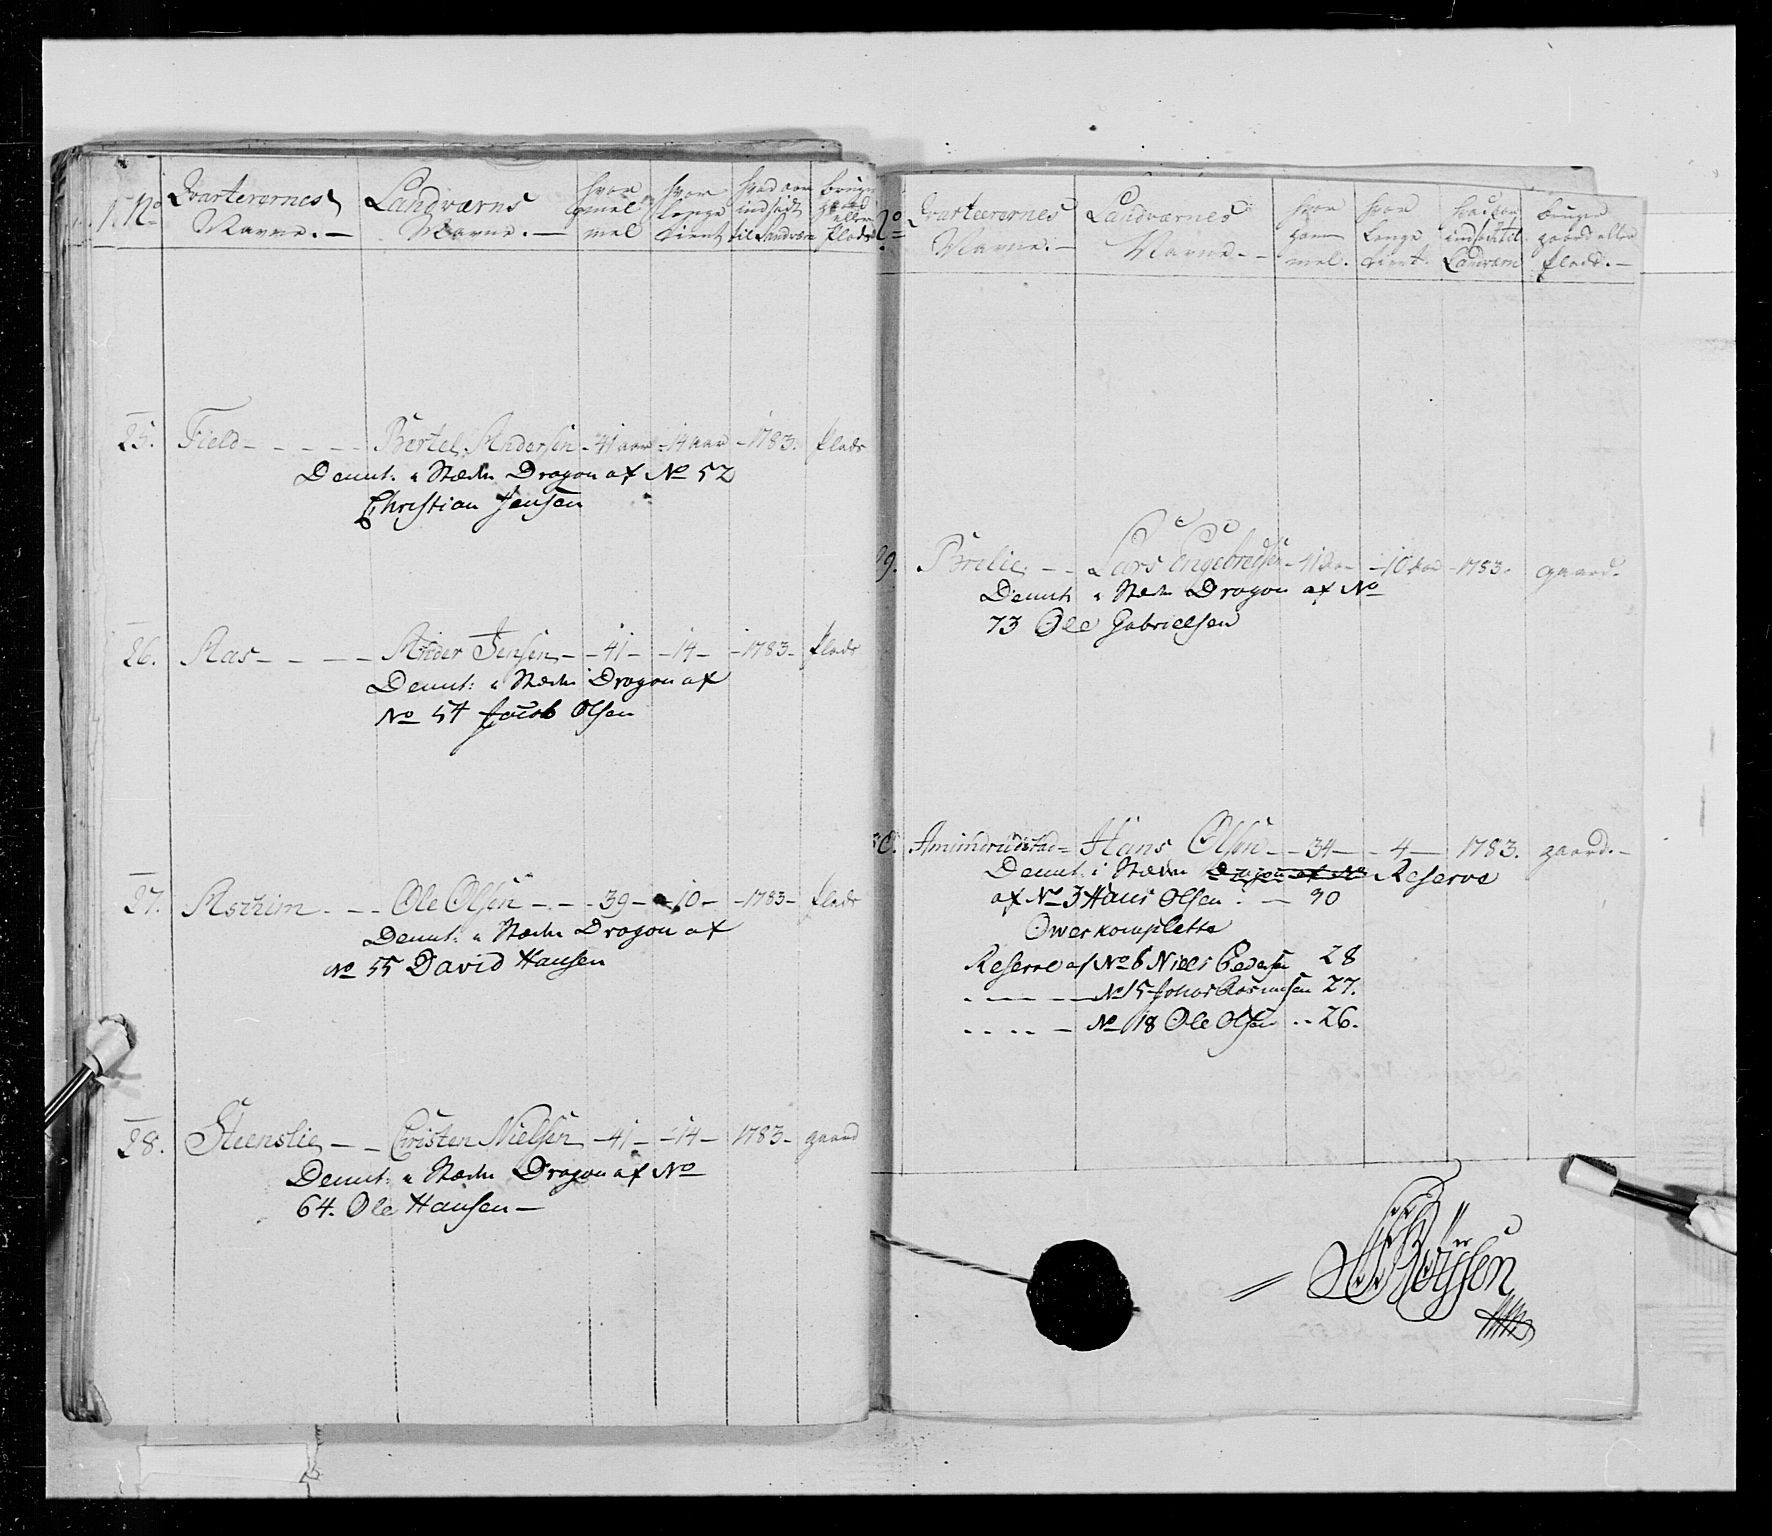 No
Qvarterernes
Navne.—
Landværns
Navne.—
hvor
gamel
hvor
lenge
tient
hvad aar
indsadt
til Landværn
bruger
gaard
eller
plads
25. Field - - - - Bertel Andersen - 41 aar - 14 aar - 1783. plads
Demt: i Stæden Dragon af No 52
Christian Jensen
26. Aas - - - - Ander Jensen - - 41 - - 14 - - 1783 - plads
Demt: i Stæden Dragon af
No 54 Jacob Olsen
27. Aschim - - - Ole Olsen - - - 39 - - 10 - - 1783 - plads
Demt: i Stæden Dragon af
No 55 David Hansen
28. Steenslie - - Christen Nielsen - 41 - - 14 - 1783 - gaard
Demt: i Stæden Dragon af No
64. Ole Hansen —
No
Qvarteerernes
Navne.—
Landværnes
Navne.—
hvor
gam
mel.
hvor
lenge
tient.
hvad aar
indsadt til
Landværn
bruger
gaard eller
plads.—
29. Brelie - - Lars Engebredsen - 41 Aar - 10 Aar - 1783. gaard.
Demt: i Stæden Dragon af No
73 Ole Gabrielsen
30. Amundrudstad - Hans Olsen - - 34 - - 4 - 1783. gaard.—
Demt: i Stæden Dragon af No Reserve
af No 3 Hans Olsen . — 30
Owerkomplette
Reserve af No 6 Niels Pedersen 28
- - - - No 15 Johas Rasmusen 27.
- - - - No 18 Ole Olsen - - 26.